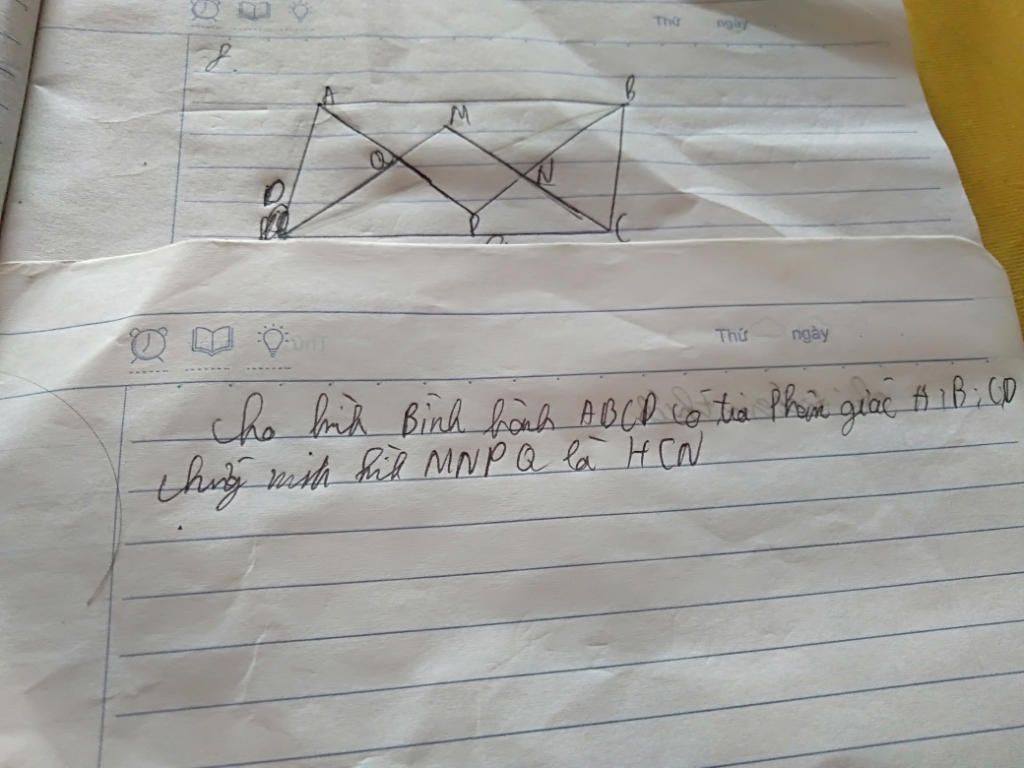 Thứ ngày
8.
A
B
M
Q
N
D
P
C
Thứ ngày
Cho hình Bình hành ABCD có tia Phân giác A;B;CD
Chứng minh hình MNPQ là HCN